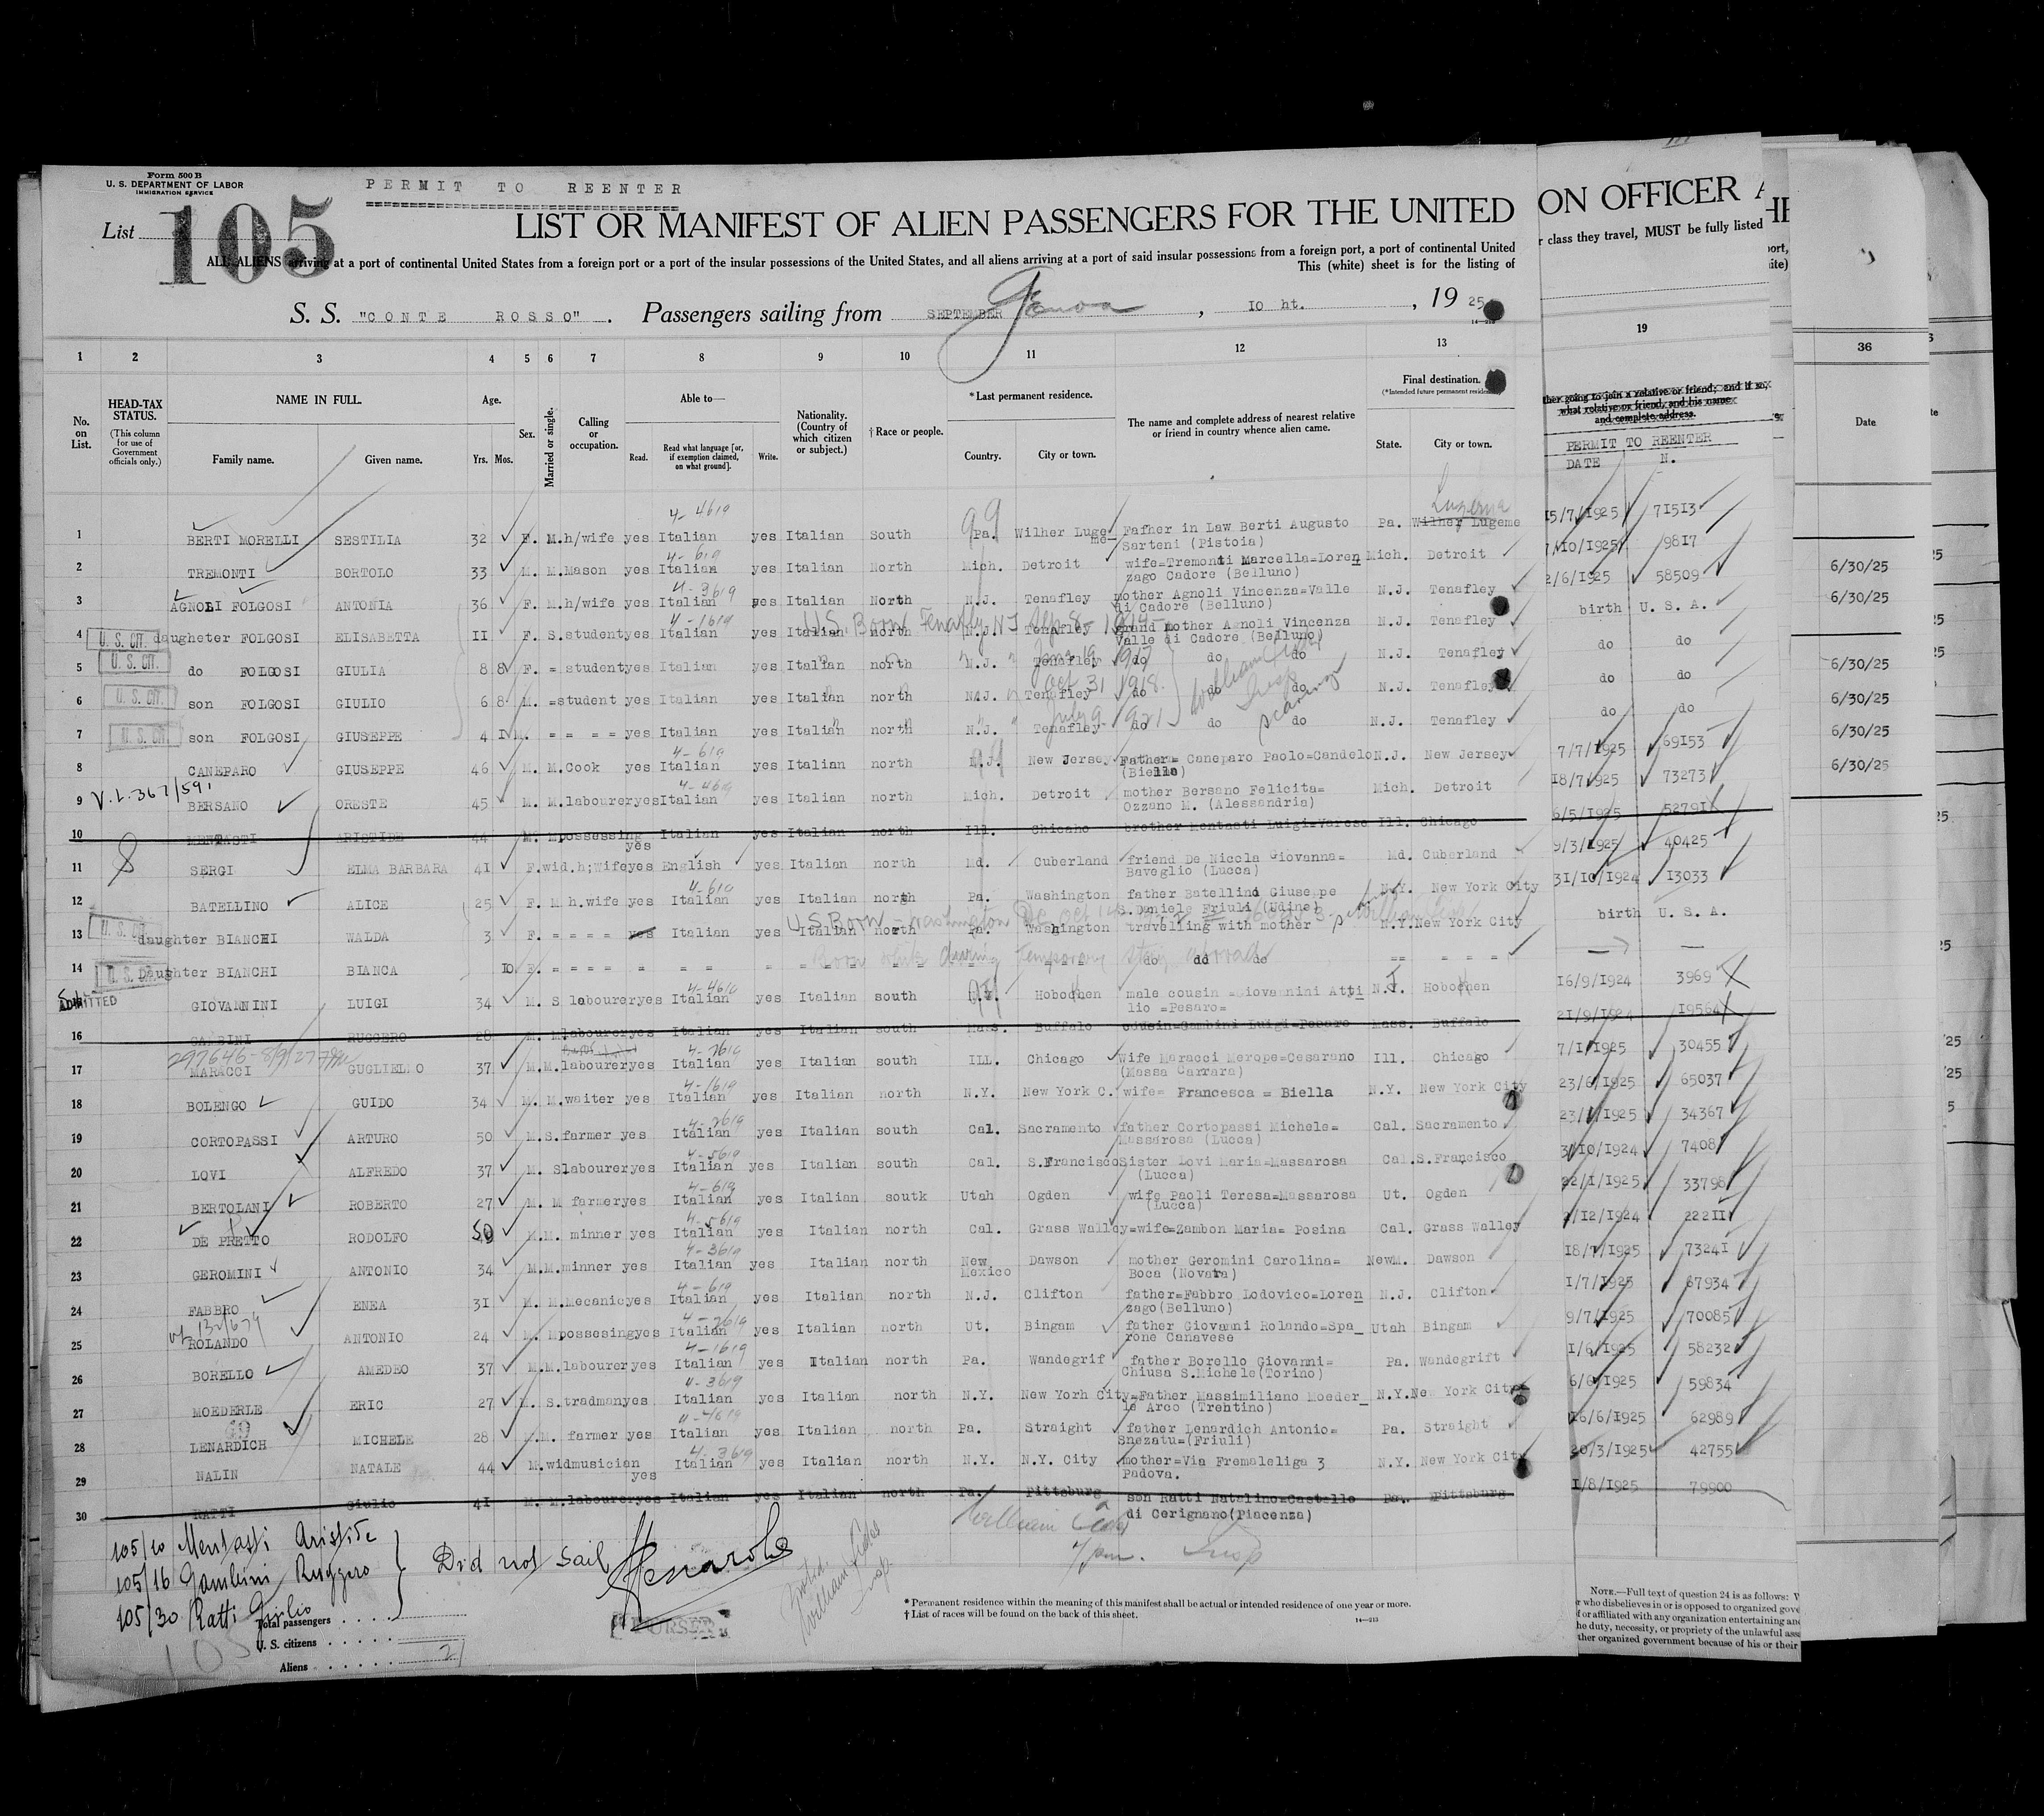 Form 500 B
U. S. DEPARTMENT OF LABOR
IMMIGRATION SERVICE
PERMIT TO REENTER
List 105
LIST OR MANIFEST OF ALIEN PASSENGERS FOR THE UNITED
ALL ALIENS arriving at a port of continental United States from a foreign port or a port of the insular possessions of the United States, and all aliens arriving at a port of said insular possessions from a foreign port, a port of continental United
This (white) sheet is for the listing of
S. S. "CONTE ROSSO". Passengers sailing from SEPTEMBER Genoa, 10 ht., 19 25
ON OFFICER A
r class they travel, MUST be fully listed
1 2 3 4 5 6 7 8 9 10 11 12 13 19 36
No. on List.
HEAD-TAX STATUS.
(This column for use of Government officials only.)
NAME IN FULL.
Family name. Given name.
Age.
Yrs. Mos.
Sex.
Married or single.
Calling or occupation.
Able to—
Read. Read what language [or, if exemption claimed, on what ground]. Write.
Nationality. (Country of which citizen or subject.)
† Race or people.
* Last permanent residence.
Country. City or town.
The name and complete address of nearest relative or friend in country whence alien came.
Final destination.
(*Intended future permanent residence)
State. City or town.
ther going to join a relative or friend; and if so,
what relative or friend, and his name
and complete address.
PERMIT TO REENTER
DATE N.
Date
Luzerne
1 BERTI MORELLI SESTILIA 32 F. M. h/wife yes Italian yes Italian South Pa. Wilher Lugeme Father in Law Berti Augusto Sarteni (Pistoia) Pa. Wilher Lugeme 15/7/1925 71513
2 TREMONTI BORTOLO 33 M. M. Mason yes Italian yes Italian North Mich. Detroit wife=Tremonti Marcella=Loren zago Cadore (Belluno) Mich. Detroit 7/10/1925 9817 6/30/25
3 AGNOLI FOLGOSI ANTONIA 36 F. M. h/wife yes Italian yes Italian North N.J. Tenafley mother Agnoli Vincenza=Valle di Cadore (Belluno) N.J. Tenafley 2/6/1925 58509 6/30/25
U.S. Born Tenafly NJ Sep 8-1914
4 U. S. CIT. daugheter FOLGOSI ELISABETTA II F. S. student yes Italian yes Italian N.J. Tenafley grand mother Agnoli Vincenza Valle di Cadore (Belluno) N.J. Tenafley birth U. S. A.
5 U. S. CIT. do FOLGOSI GIULIA 8 8 F. = student yes Italian yes Italian north N.J. Tenafley do do N.J. Tenafley do do 6/30/25
Oct 31 1918
6 U. S. CIT. son FOLGOSI GIULIO 6 8 M. =student yes Italian yes Italian north N.J. Tenafley do do do N.J. Tenafley do do 6/30/25
July 9 1921
7 U. S. CIT. son FOLGOSI GIUSEPPE 4 I M. = = = = yes Italian yes Italian north N.J. Tenafley do do do N.J. Tenafley do do 6/30/25
8 CANEPARO GIUSEPPE 46 M. M. Cook yes Italian yes Italian north N.J. New Jersey Father= Caneparo Paolo=Candelo (Biella) N.J. New Jersey 7/7/1925 69153 6/30/25
V.L.367/591
9 BERSANO ORESTE 45 M. M. labourer yes Italian yes Italian north Mich. Detroit mother Bersano Felicita= Ozzano M. (Alessandria) Mich. Detroit 18/7/1925 73273
10 MENTASTI ARISTIDE 44 M. M possessing yes Italian yes Italian north Ill. Chicaho brother Mentasti Luigi=Varese Ill. Chicago 6/5/1925 52791
11 SERGI ELMA BARBARA 41 F. wid. h;Wife yes English yes Italian north Md. Cuberland friend De Nicola Giovanna= Baveglio (Lucca) Md. Cuberland 9/3/1925 40425
12 BATELLINO ALICE 25 F. M h.wife yes Italian yes Italian north Pa. Washington father Batellino Giuseppe S.Daniele Friuli (Udine) N.Y. New York City 31/10/1924 13033
13 U. S. CIT. daughter BIANCHI WALDA 3 F. = = = = yes Italian yes Italian north Pa. Washington travelling with mother N.Y. New York City birth U. S. A.
Born while during temporary stay abroad
14 U. S. CIT. Daughter BIANCHI BIANCA 10 F. = = = = = = = do dd do == = = = =
ADMITTED GIOVANNINI LUIGI 34 M. S. labourer yes Italian yes Italian south N.Y. Hobochen male cousin =Giovannini Atti lio =Pesaro= N.J. Hobochen 16/9/1924 3969
16 GAMBINI RUGGERO 28 M. M. labourer yes Italian yes Italian south Mass. Buffalo cousin=Gambini Luigi=Pesaro Mass. Buffalo 21/9/1924 19564
297646-8/9/27
17 MARACCI GUGLIELLO 37 M. M. labourer yes Italian yes Italian south ILL. Chicago Wife Maracci Merope=Cesarano (Massa Carrara) Ill. Chicago 7/1/1925 30455
18 BOLENGO GUIDO 34 M. M. waiter yes Italian yes Italian north N.Y. New York C. wife= Francesca = Biella N.Y. New York City 23/6/1925 65037
19 CORTOPASSI ARTURO 50 M. S. farmer yes Italian yes Italian south Cal. Sacramento father Cortopassi Michele= Massarosa (Lucca) Cal. Sacramento 34367
20 LOVI ALFREDO 37 M. S labourer yes Italian yes Italian south Cal. S.Francisco Sister Lovi Maria=Massarosa (Lucca) Cal. S.Francisco 3/10/1924 7408
21 BERTOLANI ROBERTO 27 M. M farmer yes Italian yes Italian soutk Utah Ogden wife Paoli Teresa=Massarosa (Lucca) Ut. Ogden 22/1/1925 33798
22 DE PRETTO RODOLFO 50 M. M. minner yes Italian yes Italian north Cal. Grass Walley =wife=Zambon Maria= Posina Cal. Grass Walley 2/12/1924 22211
23 GEROMINI ANTONIO 34 M. M. minner yes Italian yes Italian north New Mexico Dawson mother Geromini Carolina= Boca (Novara) NewM. Dawson 18/7/1925 73241
24 FABBRO ENEA 31 M. M. mecanic yes Italian yes Italian north N.J. Clifton father=Fabbro Lodovico=Loren zago(Belluno) N.J. Clifton 1/7/1925 67934
25 ROLANDO ANTONIO 24 M. M possesing yes Italian yes Italian north Ut. Bingam father Giovanni Rolando=Spa_ rone Canavese Utah Bingam 9/7/1925 70085
26 BORELLO AMEDEO 37 M. M. labourer yes Italian yes Italian north Pa. Wandegrif father Borello Giovanni= Chiusa S.Michele(Torino) Pa. Wandegrift 1/6/1925 58232
27 MOEDERLE ERIC 27 M. S. tradman yes Italian yes Italian north N.Y. New Yorh City =Father Massimiliano Moeder_ le Arco (Trentino) N.Y. New York City 6/6/1925 59834
28 LENARDICH MICHELE 28 M. M. farmer yes Italian yes Italian north Pa. Straight father Lenardich Antonio= Snezatu=(Friuli) Pa. Straight 16/6/1925 62989
29 NALIN NATALE 44 M. wid musician yes Italian yes Italian north N.Y. N.Y. City mother=Via Fremaleliga 3 Padova. N.Y. New York City 20/3/1925 42755
30 RATTI Giulio 41 M. M. labourer yes Italian yes Italian north Pa. Pittsburg son Ratti Natalino=Castello di Cerignano(Piacenza) Pa. Pittsburg 1/8/1925 79900
105/10 Mentasti Aristide
105/16 Gambini Ruggero
105/30 Ratti Giulio
Did not sail
PURSER
Total passengers
U. S. citizens
Aliens 21
* Permanent residence within the meaning of this manifest shall be actual or intended residence of one year or more.
† List of races will be found on the back of this sheet.
14—213
NOTE.—Full text of question 24 is as follows:
r who disbelieves in or is opposed to organized gove
f or affiliated with any organization entertaining and
he duty, necessity, or propriety of the unlawful assa
ther organized government because of his or their